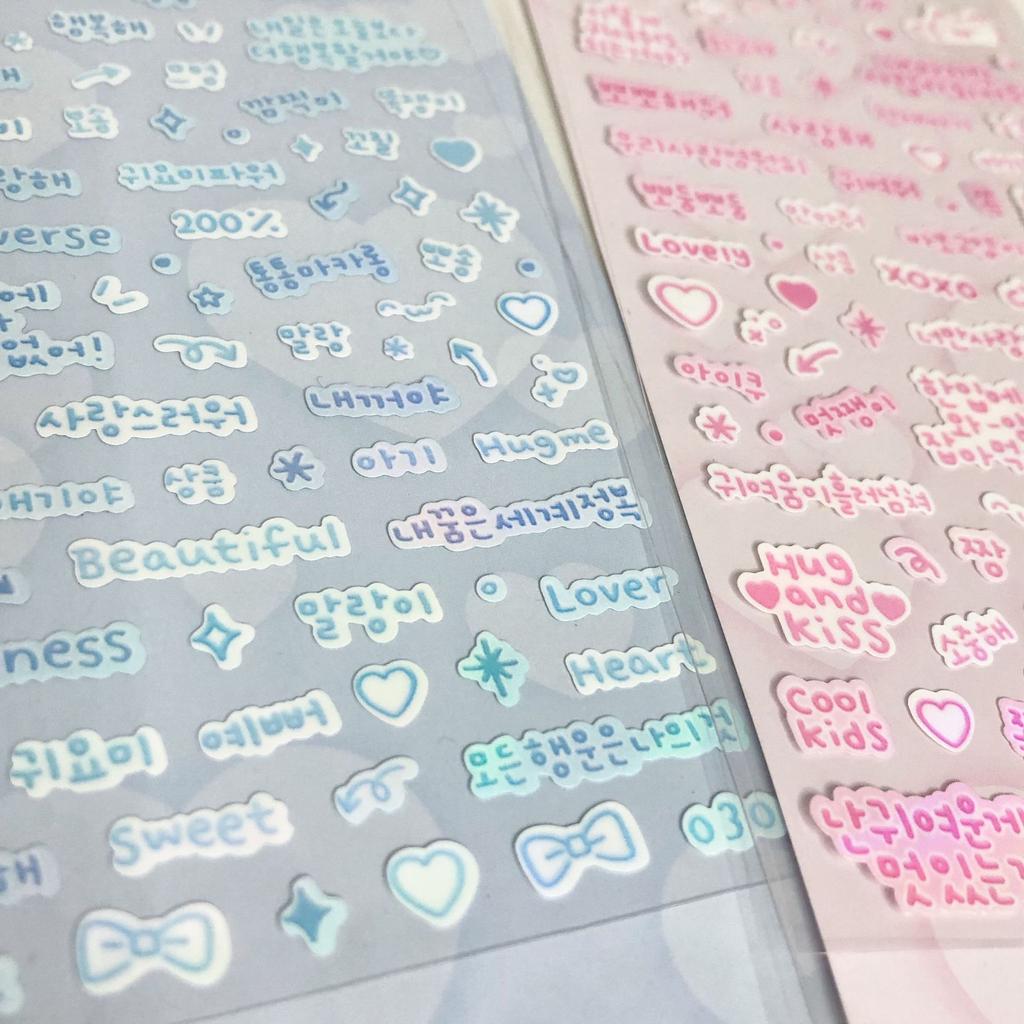 행복해
내일은오늘보다
더행복할거야
깜찍이
뽀송
꼬질
귀요미파워
200%
verse
통통마카롱
뽀송
말랑
없어!
사랑스러워
내꺼야
Hug me
아기
상큼
애기야
내꿈은세계정복
Beautiful
말랑이
Lover
ness
Heart
귀요미
예뻐
모든행운은나의것
Sweet
030
뽀뽀해줘
사랑해
우리사랑영원히
귀여워
뽀둘뽀둘
Lovely
상큼
XOXO
너만사랑
아이쿠
멋쟁이
한입에
와-앙
잡아먹
귀여움이흘러넘쳐
짱
Hug
and
kiss
소중해
Cool
kids
난귀여운게
멋있는